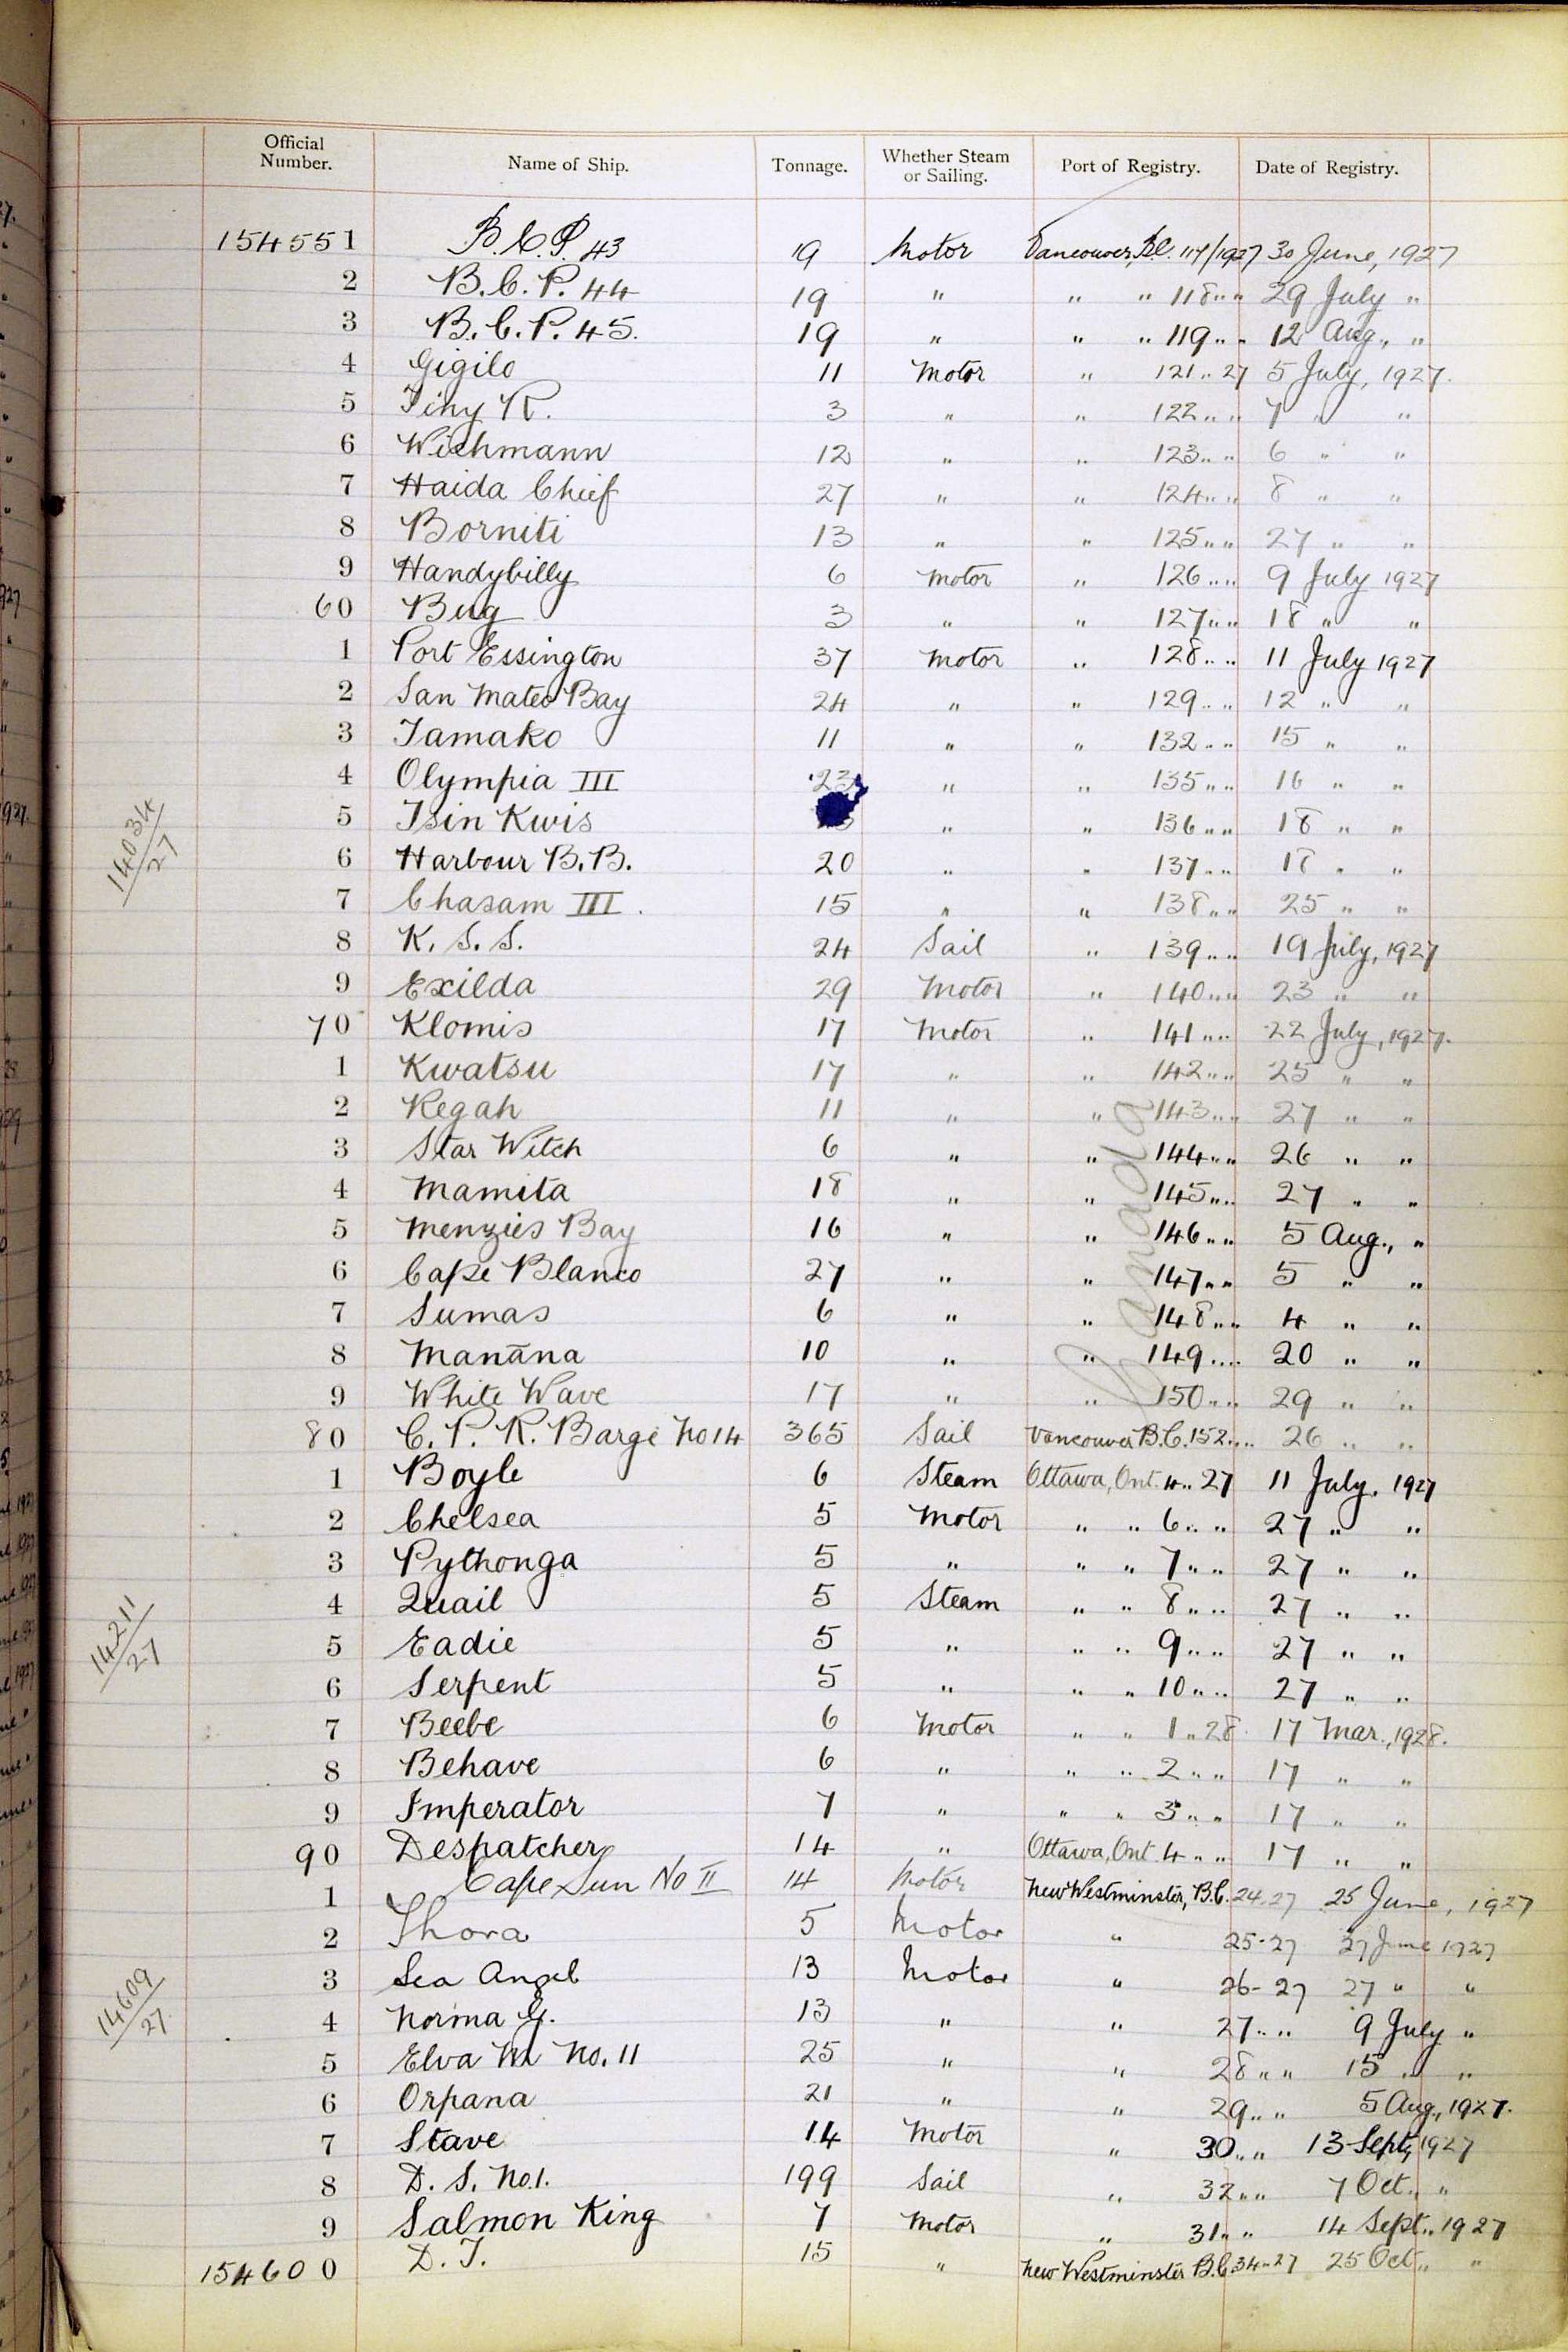 Official Number. Name of Ship. Tonnage. Whether Steam or Sailing. Port of Registry. Date of Registry.
154551 B.C.P. 43 19 Motor Vancouver, B.C. 117/1927 30 June, 1927
2 B.C.P. 44 19 " " " 118 " " 29 July "
3 B.C.P. 45. 19 " " " 119 " " 12 Aug., "
4 Gigilo 11 Motor " 121 " 27 5 July, 1927.
5 Tiny R. 3 " " 122 " " 7 " "
6 Wichmann 12 " " 123 " " 6 " "
7 Haida Chief 27 " " 124 " " 8 " "
8 Borniti 13 " " 125 " " 27 " "
9 Handybilly 6 Motor " 126 " " 9 July 1927
60 Bug 3 " " 127 " " 18 " "
1 Port Essington 37 Motor " 128 " " 11 July 1927
2 San Mateo Bay 24 " " 129 " " 12 " "
3 Tamako 11 " " 132 " " 15 " "
4 Olympia III 23 " " 135 " " 16 " "
14034/27
5 Tsin Kwis " " 136 " " 18 " "
6 Harbour B.B. 20 " " 137 " " 18 " "
7 Chasam III. 15 " " 138 " " 25 " "
8 K. S. S. 24 Sail " 139 " " 19 July, 1927
9 Exilda 29 Motor " 140 " " 23 " "
70 Klomis 17 Motor " 141 " " 22 July, 1927.
1 Kwatsu 17 " " 142 " " 25 " "
2 Kegah 11 " " 143 " " 27 " "
3 Star Witch 6 " " 144 " " 26 " "
4 Mamita 18 " " 145 " " 27 " "
5 Menzies Bay 16 " " 146 " " 5 Aug., "
Canada
6 Cape Blanco 27 " " 147 " " 5 " "
7 Sumas 6 " " 148 " " 4 " "
8 Manāna 10 " " 149 " " 20 " "
9 White Wave 17 " " 150 " " 29 " "
80 C. P. R. Barge No 14 365 Sail Vancouver B.C. 152 " " 26 " "
1 Boyle 6 Steam Ottawa, Ont. 4 " 27 11 July, 1927
2 Chelsea 5 Motor " " 6 " " 27 " "
3 Pythonga 5 " " " 7 " " 27 " "
4 Quail 5 Steam " " 8 " " 27 " "
14211/27
5 Eadie 5 " " " 9 " " 27 " "
6 Serpent 5 " " " 10 " " 27 " "
7 Beebe 6 Motor " " 1 " 28 17 Mar., 1928.
8 Behave 6 " " " 2 " " 17 " "
9 Imperator 7 " " " 3 " " 17 " "
90 Despatcher 14 " Ottawa, Ont. 4 " " 17 " "
1 Cape Sun No II 14 Motor New Westminster, B.C. 24-27 25 June, 1927
2 Thora 5 Motor " 25-27 27 June 1927
3 Sea Angel 13 Motor " 26-27 27 " "
14609/27
4 Norma G. 13 " " 27 " " 9 July "
5 Elva M No. 11 25 " " 28 " " 15 " "
6 Orpana 21 " " 29 " " 5 Aug., 1927.
7 Stave 14 Motor " 30 " " 13 Sept, 1927
8 D. S. No.1. 199 Sail " 32 " " 7 Oct. "
9 Salmon King 7 Motor " 31 " " 14 Sept., 1927
154600 D. J. 15 " New Westminster B.C. 34-27 25 Oct., "